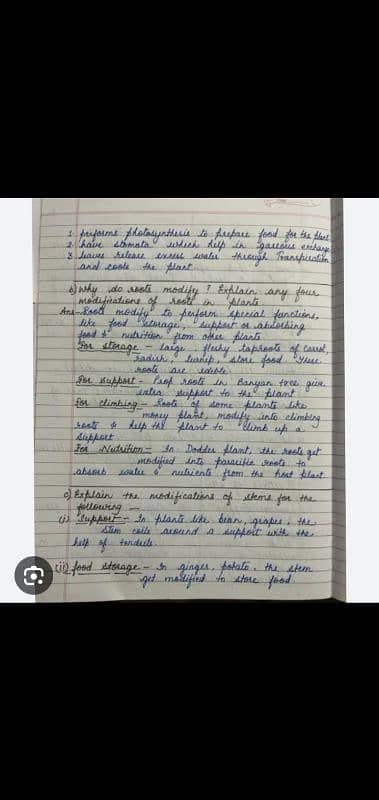 1. performs photosynthesis to prepare food for the plant
2. have stomata which help in gaseous exchange
3. leaves release excess water through Transpiration
and cools the plant
b) Why do roots modify ? Explain any four
modifications of roots in plants
Ans- Roots modify to perform special functions,
like food storage, support or absorbing
food & nutrition from other plants
For storage - large, fleshy taproots of carrot,
radish, turnip, store food. These
roots are edible.
For support - Prop roots in Banyan tree give
extra support to the plant
For climbing - Roots of some plants like
money plant, modify into climbing
roots & help the plant to climb up a
support
For Nutrition - In Dodder plant, the roots get
modified into parasitic roots to
absorb water & nutrients from the host plant
c) Explain the modifications of stems for the
following -
(i) Support - In plants like bean, grapes, the
stem coils around a support with the
help of tendrils.
(ii) food storage - In ginger, potato, the stem
get modified to store food